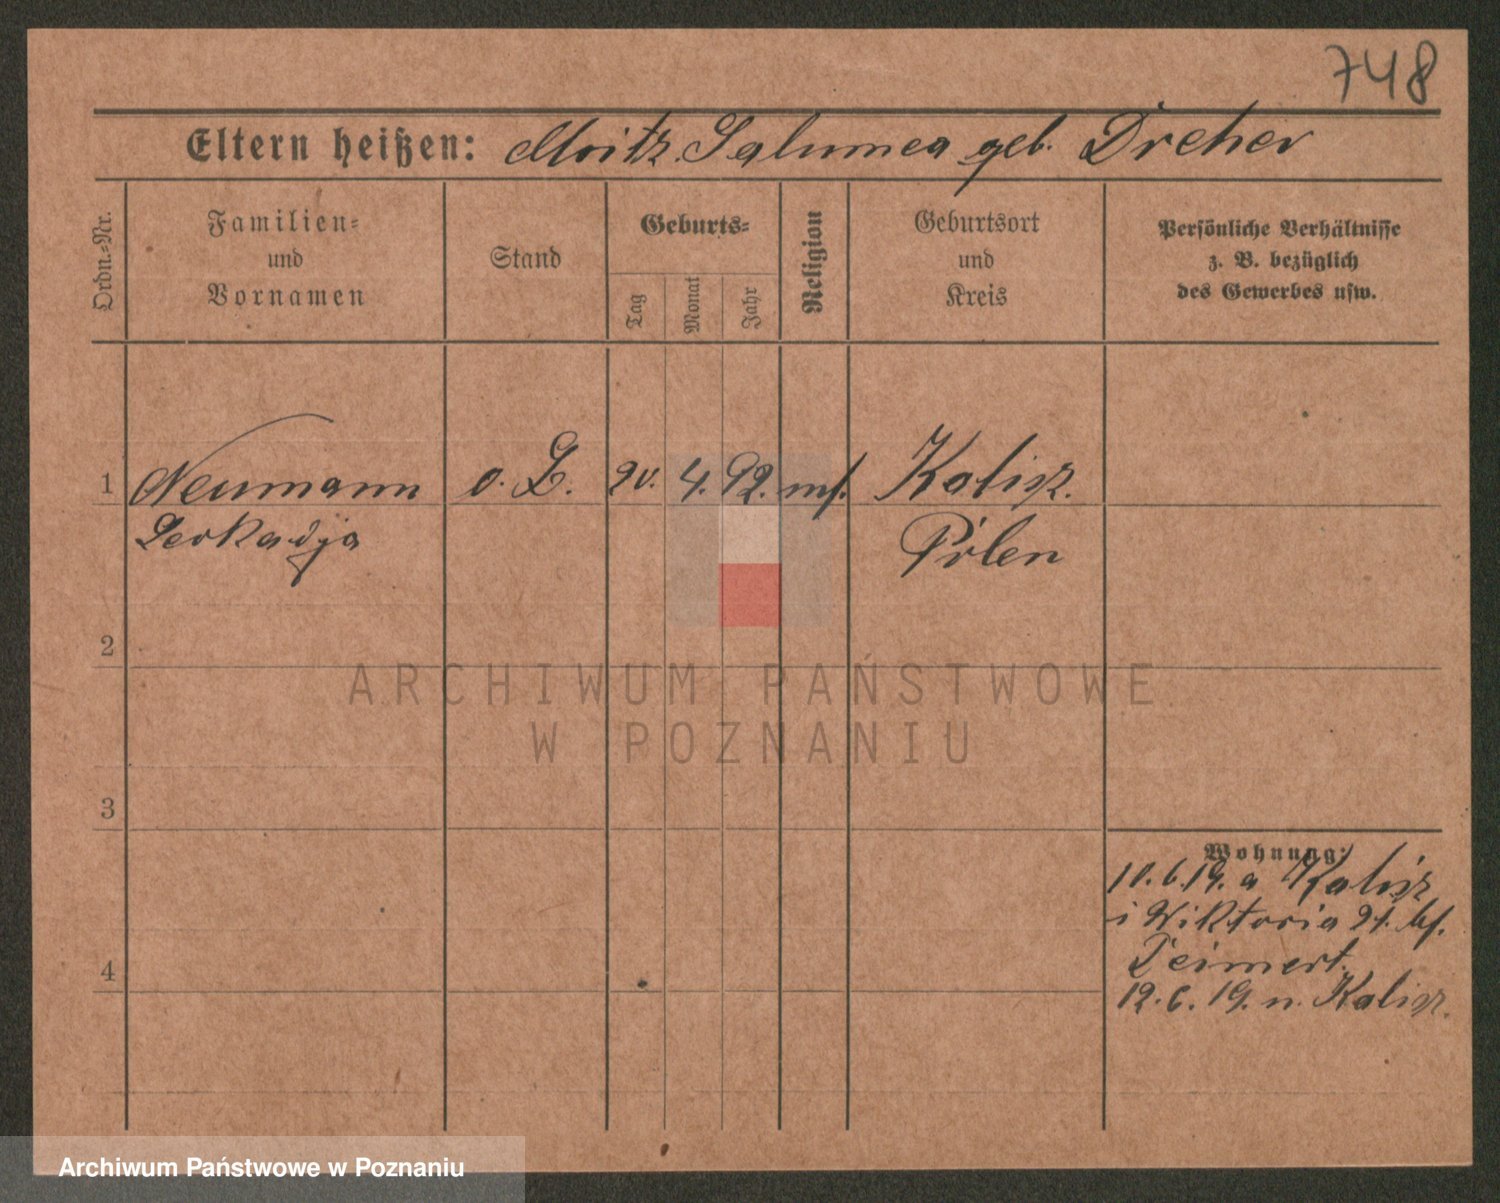 748
Eltern heißen: Moritz. Salumea geb. Dreher
Ordn.-Nr.
Familien- und Vornamen
Stand
Geburts-
Tag
Monat
Jahr
Religion
Geburtsort und Kreis
Persönliche Verhältnisse
z. B. bezüglich
des Gewerbes usw.
1 Neumann o. 20. 4. 92. Kalisz.
Leokadja Polen
2
ARCHIWUM PAŃSTWOWE
W POZNANIU
3
Wohnung:
10.6.19. a Kalisz
i Wiktoria 21. bf.
4
12.6.19. n. Kalisz.
Archiwum Państwowe w Poznaniu